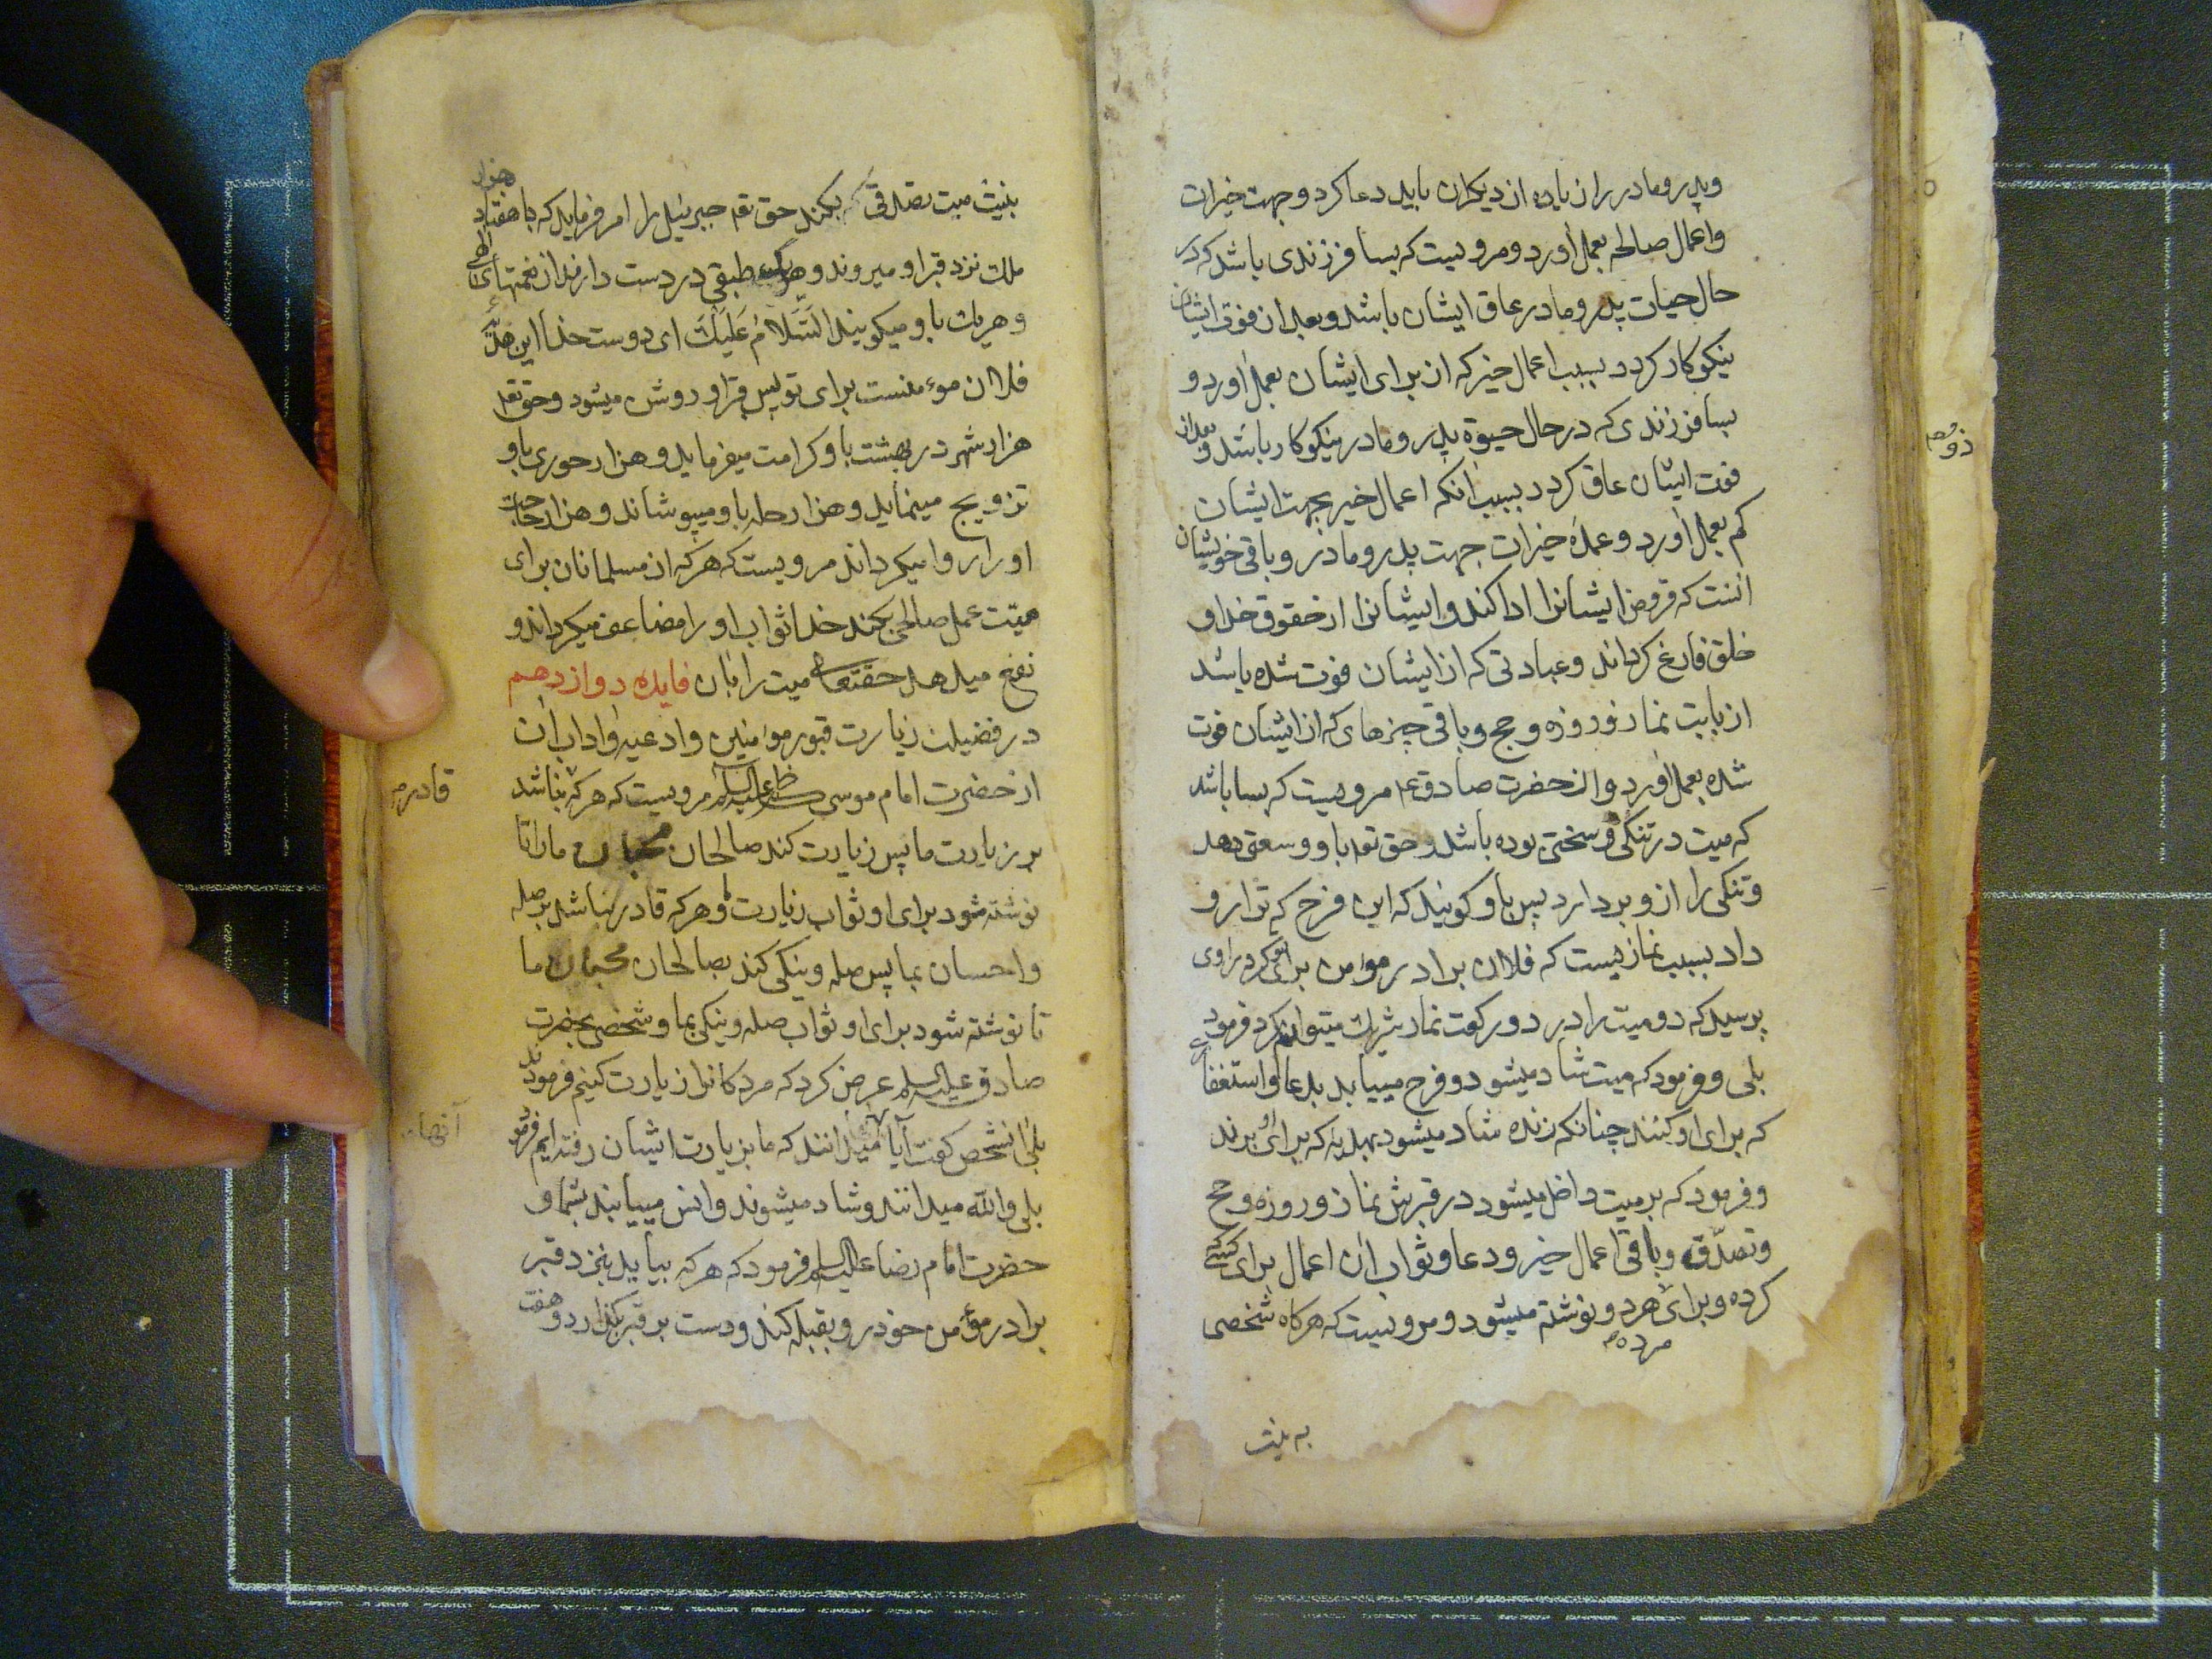 وپدر ومادر را زیاده از دیکران باید دعا کرد وجهت خیرات
واعمال صالحه بعمل آورد ومرویست که بسا فرزندی باشد که در
حال حیات پدر ومادر عاق ایشان باشد وبعد از فوت ایشان
نیکوکار کردد بسبب اعمال خیر که از برای ایشان بعمل آورد و
بسا فرزندی که در حال حیوة پدر ومادر نیکوکار باشد وبعد از
فوت ایشان عاق کردد بسبب آنکه اعمال خیر بجهت ایشان
کم بعمل آورد وعمدهٔ خیرات جهت پدر ومادر وباقی خویشان
آنست که قروض ایشانرا ادا کند وایشانرا از حقوق خدا و
خلق فارغ کرداند وعبادتی که از ایشان فوت شده باشد
از بابت نماز وروزه وحج وباقی چیزهای که از ایشان فوت
شده بعمل آورد واز حضرت صادق ع مرویست که بسا باشد
که میت در تنکی وسختی بوده باشد وحق تعه باو وسعتی دهد
وتنکی را از وبردارد پس باو کویند که این فرح که ترا رو
داد بسبب نمازیست که فلان برادر مؤمن برای تو کرد راوی
پرسید که دو میت را در دو رکعت نماز شریک میتوان کرد فرمود
بلی وفرمود که میت شاد میشود وفرح مییابد بدعا واستغفاری
که برای او کنند چنانکه زنده شاد میشود بهدیهٔ که برای او برند
وفرمود که بر میت داخل میشود در قبرش نماز وروزه وحج
وتصدّق وباقی اعمال خیر ودعا وثواب آن اعمال برای کسی که
کرده وبرای مرده هر دو نوشته میشود ومرویست که هرکاه شخصی
به نیت
بنیت میت تصدقی بکند حق تعه جبرئیل را امر فرماید که با هفتاد هزار
ملک نزد قبر او میروند وهریک طبقی در دست دارند از نعمتهای الهی
وهریک باو میکویند السَّلامُ عَلَیْکَ ای دوست خدا این هدیّهٔ
فلان مؤمنست برای تو پس قبر او روشن میشود وحق تعه
هزار شهر در بهشت باو کرامت میفرماید وهزار حوری باو
تزویج مینماید وهزار حله باو میپوشاند وهزار حاجت
او را روا میکرداند مرویست که هر که از مسلمانان برای
میّت عمل صالحی بکند خدا ثواب او را مضاعف میکرداند و
نفع میدهد حقتعالی میت را بآن فایده دوازدهم
در فضیلت زیارت قبور مؤمنین وادعیه وآداب آن
از حضرت امام موسی کاظم علیه السلم مرویست که هر که قادر نباشد
بر زیارت ما پس زیارت کند صالحان محبان ما را تا
نوشته شود برای او ثواب زیارت ما وهر که قادر نباشد بر صله
واحسان بما پس صله ونیکی کند بصالحان محبان ما
تا نوشته شود برای او ثواب صله ونیکی بما وشخصی بحضرت
صادق علیه السلم عرض کرد که مردکانرا زیارت کنیم فرمودند
بلی آنشخص کفت آیا آنها میدانند که ما بزیارت ایشان رفته ایم فرمود
بلی والله میدانند وشاد میشوند وانس مییابند بشما و
حضرت امام رضا علیه السلم فرمود که هر که بیاید بنزد قبر
برادر مؤمن خود رو بقبله کند ودست بر قبر بکذارد وهفت